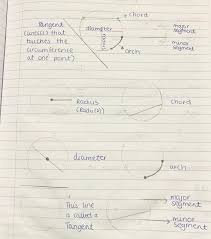 chord
Tangent
(well) that
touches the
circumference
at one point)
Diameter
major
segment
minor
segment
arch
Radius
(Radii)
chord
diameter
arch
This line
is called a
Tangent
major
segment
minor
segment